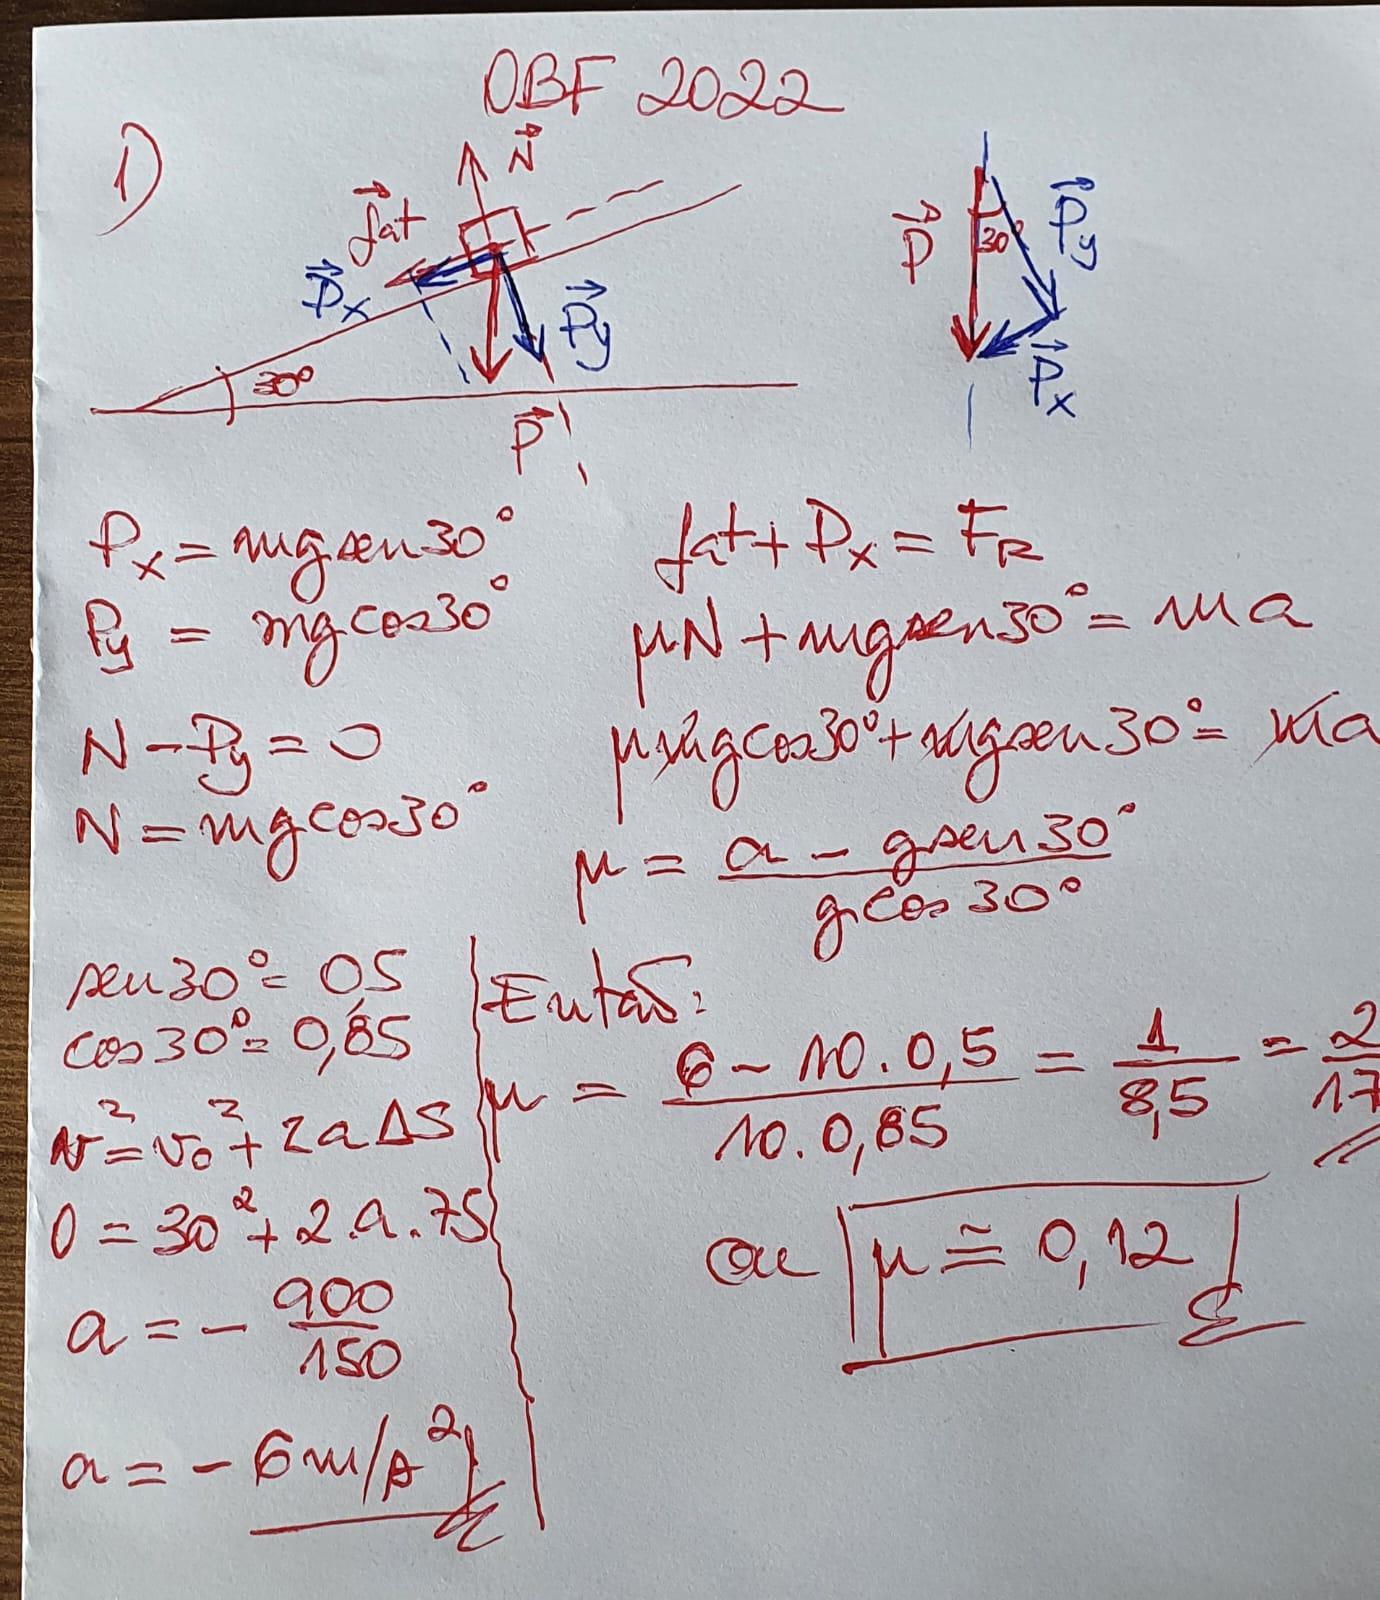 OBF 2022
1)
N
fat
Px
Py
30°
P
P
30°
Py
Px
Px = mg sen 30°
Py = mg cos 30°
N - Py = 0
N = mg cos 30°
fat + Px = FR
μN + mg sen 30° = ma
μmg cos 30° + mg sen 30° = ma
μ = (a - g sen 30°) / (g cos 30°)
sen 30° = 0,5
cos 30° = 0,85
v² = v₀² + 2aΔS
0 = 30² + 2.a.75
a = - 900/150
a = - 6 m/s²
Então:
μ = (6 - 10.0,5) / (10.0,85) = 1/8,5 = 2/17
ou μ ≅ 0,12